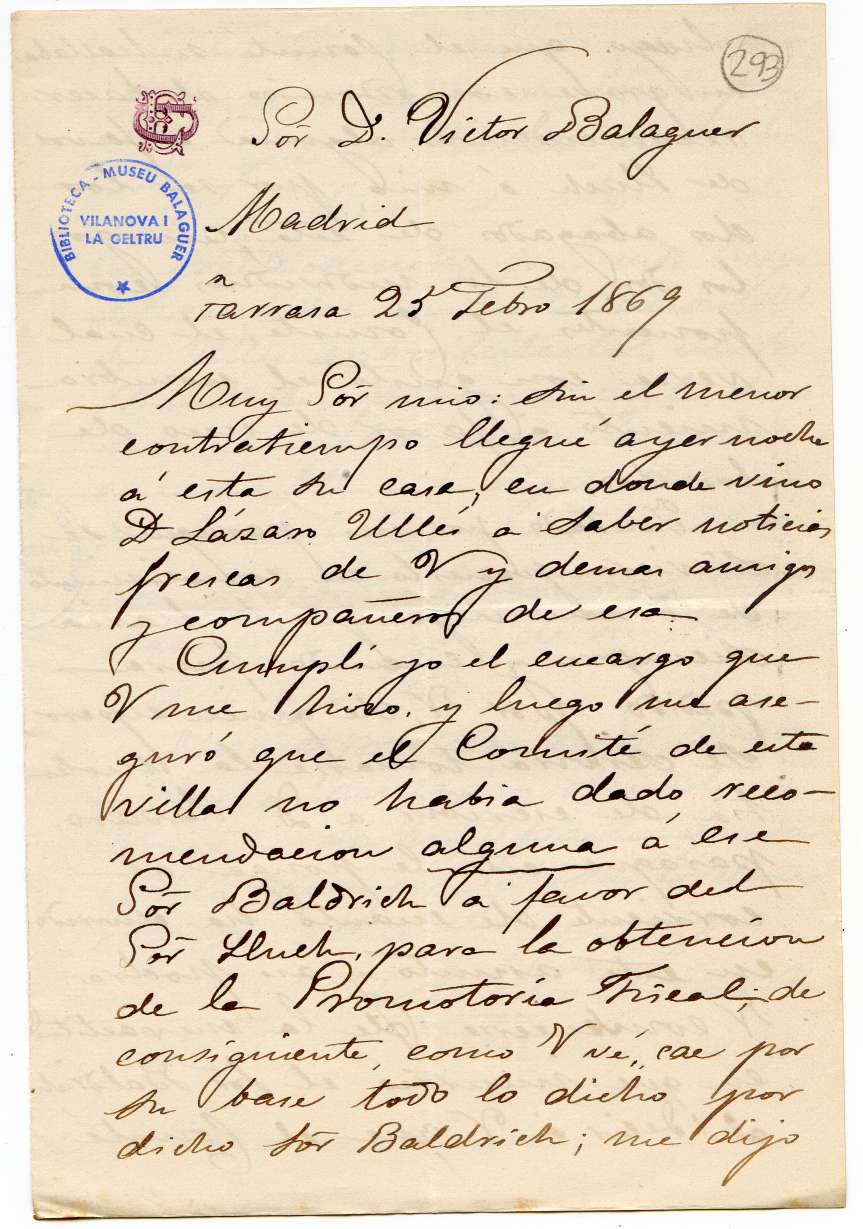 293
BIBLIOTECA - MUSEU BALAGUER
VILANOVA I
LA GELTRU
Sör D. Victor Balaguer
Madrid
Tarrasa 25 Febro 1869
Muy Sör mio: sin el menor
contratiempo llegué ayer noche
á esta su casa, en donde vino
D Lázaro Ullés a saber noticias
frescas de V y demas amigos
y compañeros de esa.
Cumplí yo el encargo que
V me hizo, y luego me ase-
guró que el Comité de esta
villa no habia dado reco-
mendacion alguna á ese
Sör Baldrich a favor del
Sör Lluch, para la obtencion
de la Promotoría Fiscal; de
consiguiente, como V vé, cae por
su base todo lo dicho por
dicho Sör Baldrich; me dijo